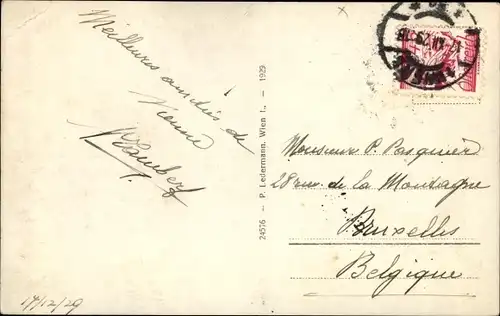 Meilleures amitiés de
Vienne
24576 — P. Ledermann, Wien I., — 1929
Monsieur P. Pasquier
28 rue de la Montagne
Bruxelles
Belgique
17/12/29